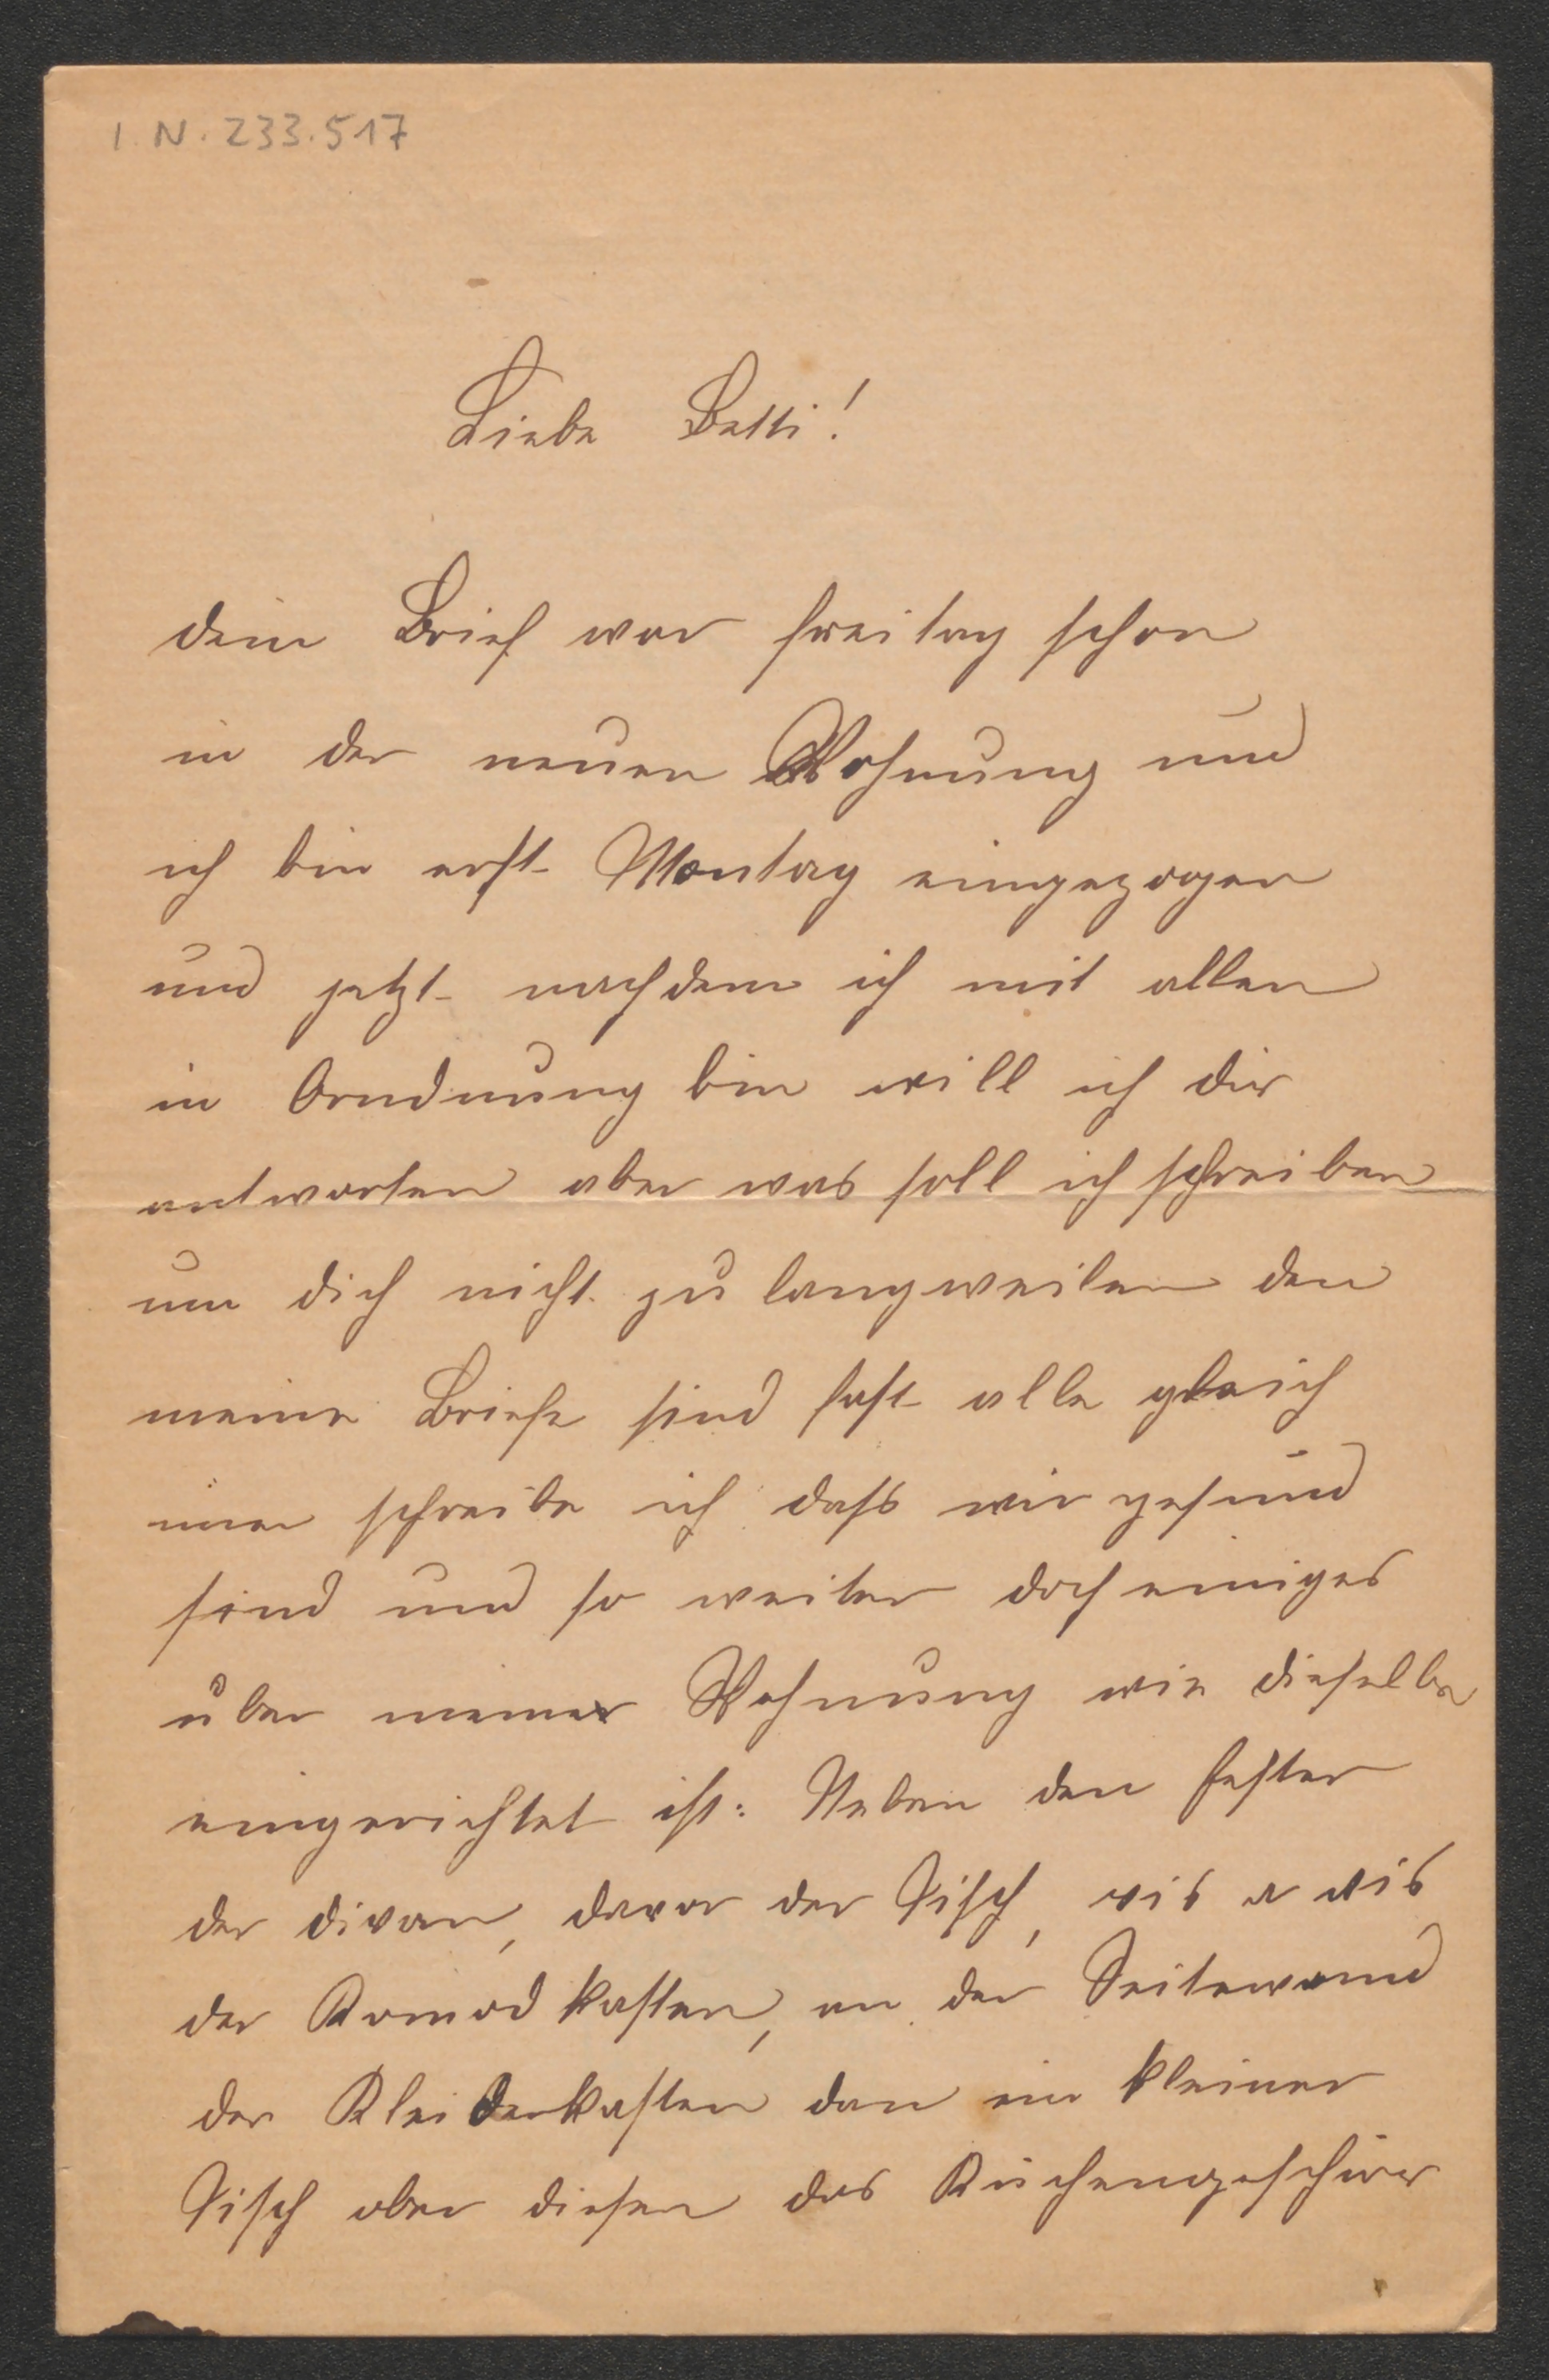 I. N. 233.517
Liebe Betti!
dein Brief war freitag schon
in der neuen Wohnung und
ich bin erst Montag eingezogen
und jetzt nachdem ich mit allen
in Orndnung bin will ich dir
antworten aber was soll ich schreiben
um dich nicht zu langweilen den
meine Briefe sind fast alle gleich
imer schreibe ich dass wir gesund
sind und so weiter doch einiges
über meiner Wohnung wie dieselbe
eingerichtet ist: Neben den fester
der divan, davor der Tisch, vis a vis
der Komod kasten, an der Seitewand
der Kleiderkasten dan ein kleiner
Tisch ober diesen das Küchengeschirr